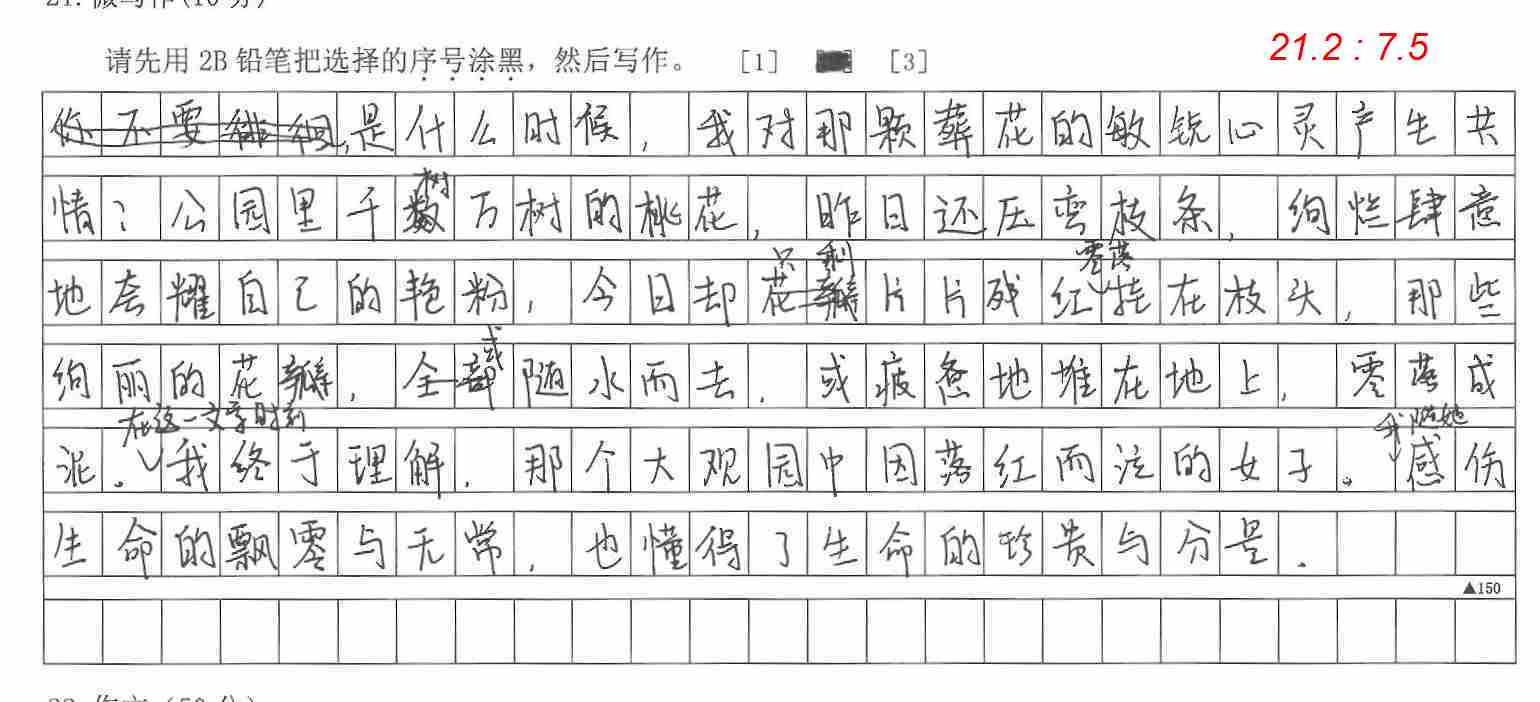 21.微写作(10分)
请先用2B铅笔把选择的序号涂黑，然后写作。 [1] [3]
21.2 : 7.5
你不要徘徊，是什么时候，我对那颗葬花的敏锐心灵产生共
情？公园里千树万树的桃花，昨日还压弯枝条，绚烂肆意
地夸耀自己的艳粉，今日却只剩片片残红零落挂在枝头，那些
绚丽的花瓣，全或随水而去，或疲惫地堆在地上，零落成
泥。在这一文字时刻我终于理解，那个大观园中因落红而泣的女子。我随她感伤
生命的飘零与无常，也懂得了生命的珍贵与分量。
▲150